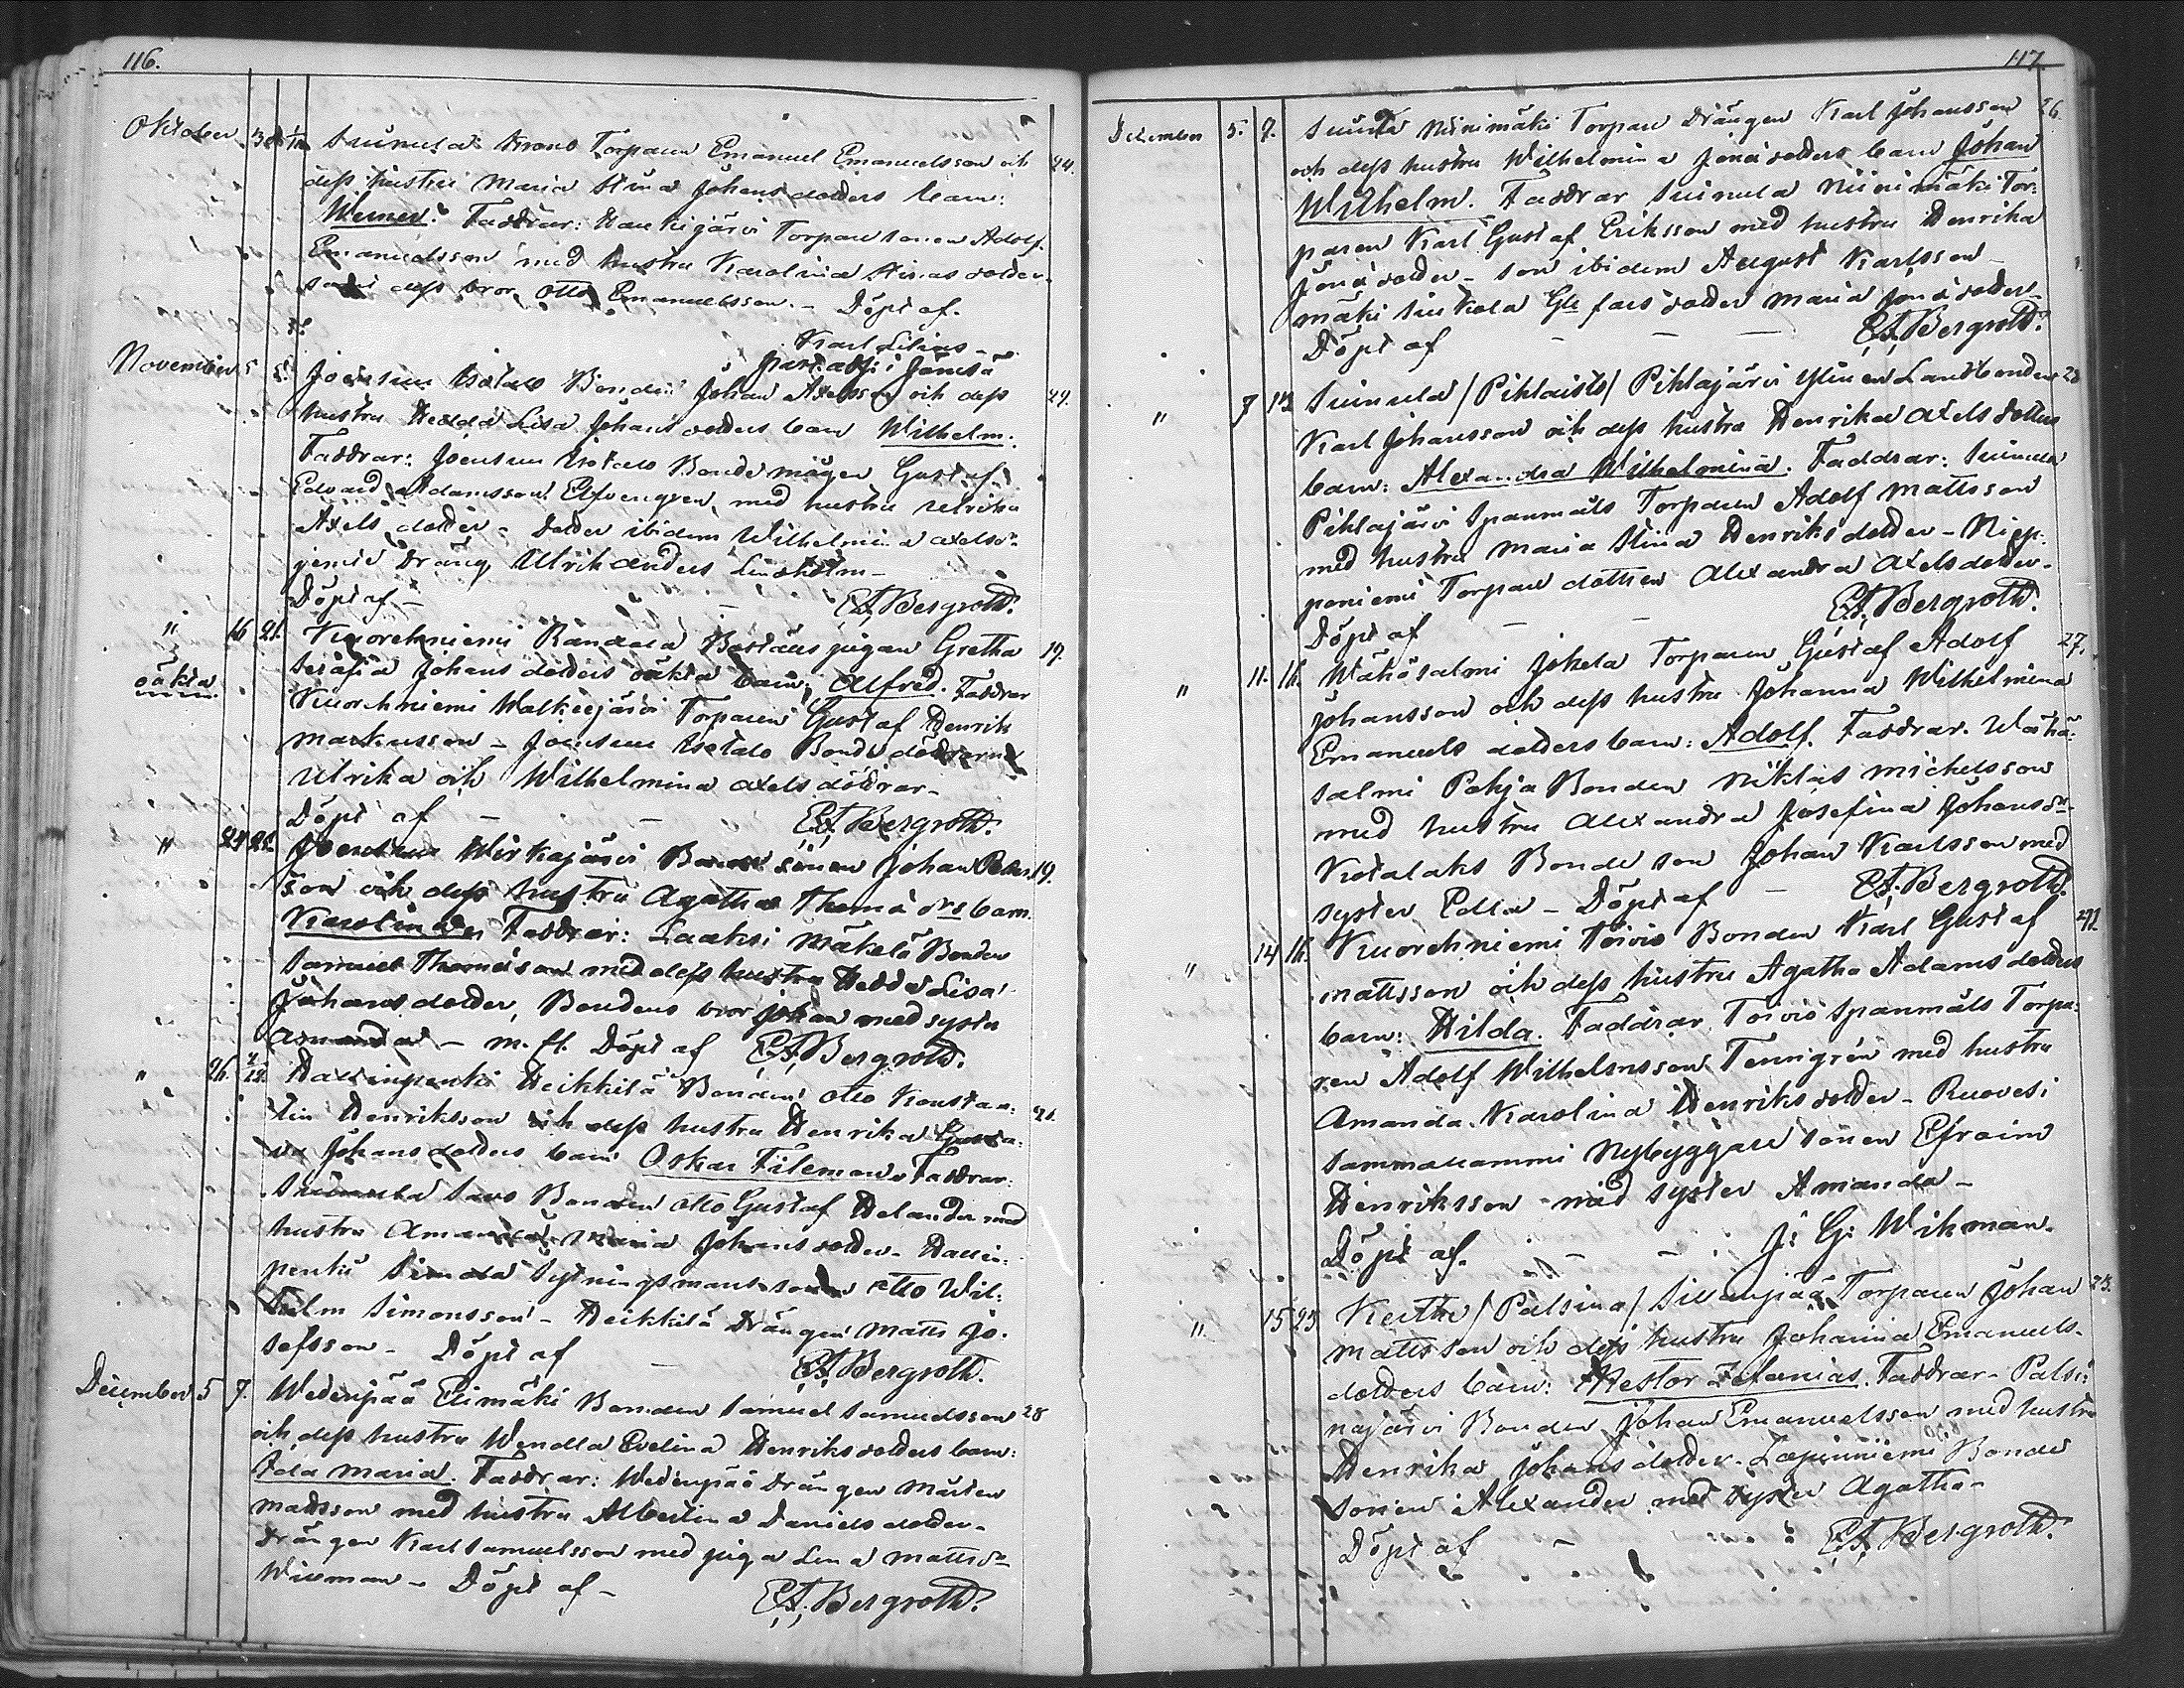 116.
Oktober 30 1/11 Suinula Krono Torparen Emanuel Emanuelsson och 24.
dess hustru Maria Stina Johans dotters barn:
Werner. Faddrar: Haukijärvi Torpare sonen Adolf
Emanuelsson med hustru Karolina dotter
samt dess bror Otto Emanuelsson. – Döpt af.
Karl Lilius
Past. adj. i Jämsä
November 5 5. Joensuu Isotalo Bonden Johan Axelsson och dess 29.
hustru Hedda Lisa Johans dotters barn Wilhelm.
Faddrar: Joensuu Isotalo Bonde mågen Gustaf
Edvard Adamsson Elfvengren, med hustru Ulrika
Axels dotter – dotter ibidem Wilhelmina Axelsdr
jemte dräng Ulrik Anders Lindholm –
Döpt af – – E.A. Bergroth.
" 16 21. Kuorehniemi Randala Backtals pigan Gretha 19.
oäkta Serafia Johans dotters oäkta barn: Alfred. Faddrar
Kuorehniemi Walkiejärvi Torparen Gustaf Henrik
Markusson – Joensuu Isotalo Bonde döttrarne
Ulrika och Wilhelmina Axels döttrar –
Döpt af – – E.A. Bergroth.
" 24 28. Joensuu Wirkajärvi Bonde sonen Johan Peters 19.
son och dess hustru Agatha Thomä drs barn
Karolina. Faddrar: Laaksi Mäkelä Bonden
Samuel Thomäson med dess hustru Hedda Lisa
Johans dotter, Bondens bror Johan med syster
Amanda – m. fl. Döpt af E.A. Bergroth.
" 26. 2/12. Hallinpenki Heikkilä Bonden Otto Konstan- 21.
tin Henriksson och dess hustru Henrika Gusta-
va Johans dotters barn Oskar Fileman. Faddrar:
Suinula Savo Bonden Otto Gustaf Helander med
hustru Amanda Maria Johans dotter – Hallin-
penki Simola Sytningsmans sonen Otto Wil-
helm Simonsson – Heikkilä Drängen Matts Jo-
sefsson – Döpt af – E.A. Bergroth.
December 5 7. Wedenpää Elimäki Bonden Samuel Samuelsson 28
och dess hustru Wendla Evelina Henriks dotters barn:
Ida Maria. Faddrar: Wedenpää Drängen Mårten
Madsson med hustru Albertina Daniels dotter –
Drängen Karl Samuelsson med piga Lena Mattsdr
Wikman – Döpt af – E.A. Bergroth.
117.
December 5. 7. Suinula Niinimäki Torpare Drängen Karl Johansson 26.
och dess hustru Wilhelmina Jonä dotters barn Johan
Wilhelm. Faddrar Suinula Niinimäki Tor-
paren Karl Gustaf Eriksson med hustru Henrika
Jonä dotter – son ibidem August Karlsson –
mäki Suikola dotter Maria Jonä dotter –
Döpt af – – – E.A. Bergroth.
" 7 12 Suinula /Pihlaisto/ Pihlajärvi Ylinen Landtbonden 28
Karl Johansson och dess hustru Henrika Axels dotters
barn: Alexandra Wilhelmina. Faddrar: Suinula
Pihlajärvi Spanmåls Torparen Adolf Mattsson
med hustru Maria Stina Henriks dotter – Niep-
poniemi Torpare dottren Alexandra Axels dotter –
Döpt af – – E.A. Bergroth.
" 11. 16. Wähösalmi Jokela Torparen Gustaf Adolf 27.
Johansson och dess hustru Johanna Wilhelmina
Emanuels dotters barn: Adolf. Faddrar. Wähä-
salmi Pohja Bonden Niklas Michelsson
med hustru Alexandra Josefina Johansdr –
Kotalaks Bonde son Johan Karlsson med
syster Edla – Döpt af – E.A. Bergroth.
" 14 16. Kuorehniemi Toivio Bonden Karl Gustaf 41.
Mattsson och dess hustru Agatha Adams dotters
barn: Hilda. Faddrar Toivio Spanmåls Torpa-
ren Adolf Wilhelmsson Tenngrén med hustru
Amanda Karolina Henriks dotter – Ruovesi
Sammallammi Nybyggare sonen Efraim
Henriksson – med syster Amanda –
Döpt af. – – J. G. Wikman.
" 15 25 Keitha /Pälsina/ Sillanpää Torparen Johan 23.
Mattsson och dess hustru Johanna Emanuels-
dotters barn: Nestor Zefanias. Faddrar – Palsi-
najärvi Bonden Johan Emanuelsson med hustru
Henrika Johans dotter – Lapinniemi Bonde
sonen Alexander med syster Agatha –
Döpt af – E.A. Bergroth.